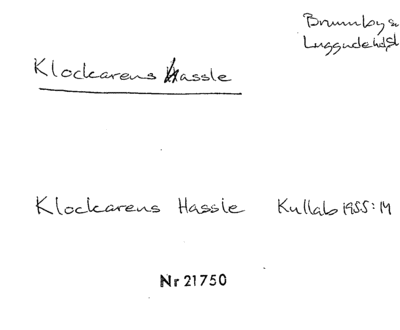 Brunnby sn
Luggude hd, Sk
Klockarens Hassle
Klockarens Hassle Kullab 1955:14
Nr 21750